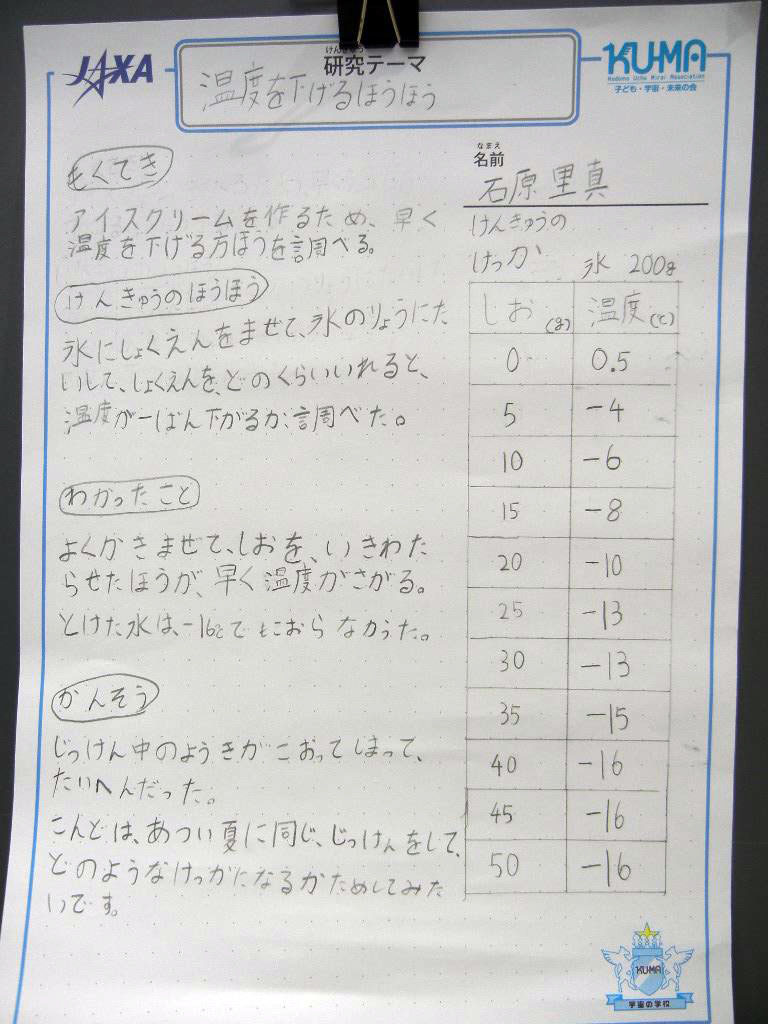 JAXA
けんきゅう
研究テーマ
温度を下げるほうほう
KU-MA
Kodomo Uchu Mirai Association
子ども・宇宙・未来の会
なまえ
名前
石原里真
もくてき
アイスクリームを作るため、早く
温度を下げる方ほうを調べる。
けんきゅうのほうほう
氷にしょくえんをませて、氷のりょうにた
いして、しょくえんを、どのくらいいれると、
温度が一ばん下がるか調べた。
わかったこと
よくかきませて、しおを、いきわた
らせたほうが、早く温度がさがる。
とけた水は、-16℃でもこおらなかった。
かんそう
じっけん中のようきがこおってしまって、
たいへんだった。
こんどは、あつい夏に同じ、じっけんをして、
どのようなけっかになるかためしてみた
いです。
けんきゅうの
けっか 氷 200g
しお(g) 温度(℃)
0 0.5
5 -4
10 -6
15 -8
20 -10
25 -13
30 -13
35 -15
40 -16
45 -16
50 -16
KU-MA
宇宙の学校